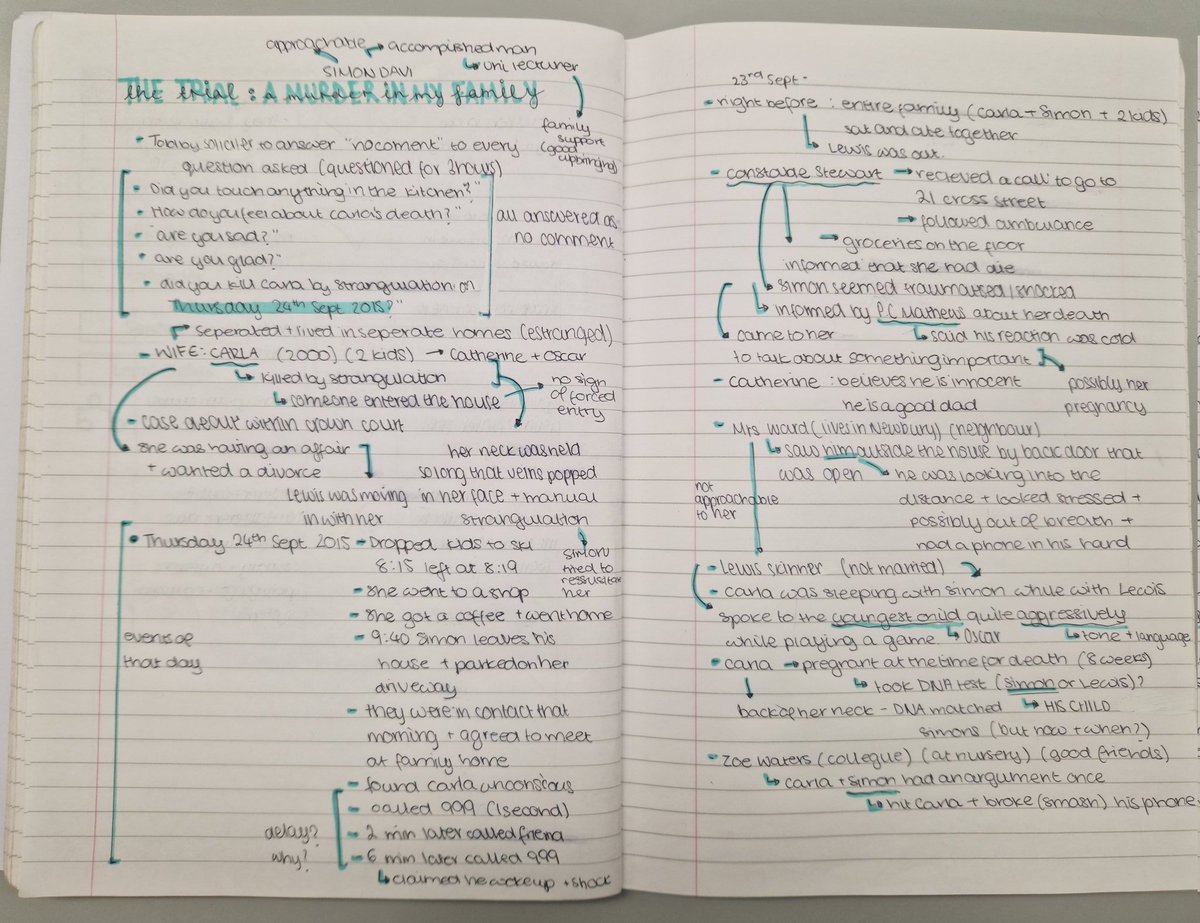 approachable → accomplished man
SIMON DAVI ↳ uni lecturer
the trial : A murder in my family
THE TRIAL : A MURDER IN MY FAMILY
family
support
(good
upbringing)
- Told by soliciter to answer "no comment" to every
question asked (questioned for 3 hours)
• Did you touch anything in the kitchen?"
• How do you feel about carla's death?"
• "are you sad?"
• are you glad?"
• did you kill carla by strangulation on
Thursday 24th Sept 2015?"
all answered as
no comment
seperated + lived in seperate homes (estranged)
- WIFE: CARLA (2000) (2 kids) → Catherine + Oscar
↳ killed by strangulation
↳ someone entered the house
→ no sign
of forced
entry
- case debut within crown court
she was having an affair
+ wanted a divorce
Lewis was moving
in with her
her neck was held
so long that veins popped
in her face + manual
strangulation
simon
tried to
her
events of
that day
• Thursday 24th Sept 2015 - Dropped kids to
8:15 left at 8:19
- she went to a shop
- she got a coffee + went home
- 9:40 Simon leaves his
house + parked on her
driveway
- they were in contact that
morning + agreed to meet
at family home
- found carla unconscious
- called 999 (1 second)
- 2 min later called friend
- 6 min later called 999
↳ claimed he woke up + shock
delay?
why?
23rd Sept -
- right before : entire family (carla + simon + 2 kids)
sat and ate together
↳ Lewis was out.
- constable Stewart → recieved a call to go to
21 cross street
→ followed ambulance
→ groceries on the floor
informed that she had die
↳ simon seemed traumatised / shocked
↳ informed by PC Mathews about her death
came to her ↳ said his reaction was cold
to talk about something important
possibly her
pregnancy
- catherine : believes he is innocent
he is a good dad
- Mrs ward (lives in Newbury) (neighbour)
↳ saw him outside the house by back door that
was open → he was looking into the
distance + looked stressed +
possibly out of breath +
had a phone in his hand
not
approachable
to her
- Lewis skinner (not married)
- carla was sleeping with simon while with Lewis
spoke to the youngest child quite aggressively
while playing a game. ↳ Oscar ↳ tone + language
- carla → pregnant at the time for death (8 weeks)
↳ took DNA test (simon or Lewis)?
back of her neck - DNA matched ↳ HIS CHILD
simons (but how + when?)
- Zoe Waters (collegue) (at nursery) (good friends)
↳ carla + simon had an argument once
↳ hit Carla + broke (smash) his phone